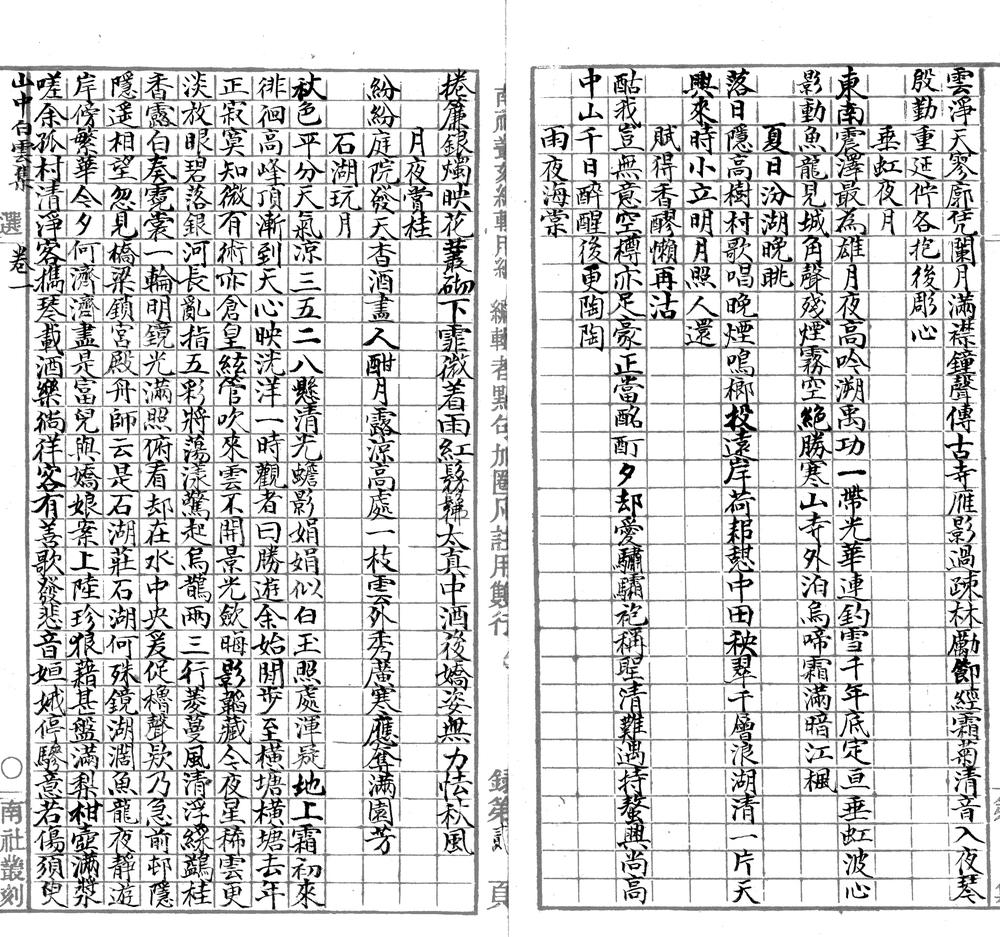 雲淨天寥廓凭闌月滿襟鐘聲傳古寺雁影過疎林勵節經霜菊清音入夜琴
殷勤重延佇各抱後彫心
垂虹夜月
東南震澤最為雄月夜高吟溯禹功一帶光華連釣雪千年底定亘垂虹波心
影動魚龍見城角聲殘煙霧空絕勝寒山寺外泊烏啼霜滿暗江楓
夏日汾湖晚眺
落日隱高樹村歌唱晚煙鳴榔投遠岸荷耜憇中田秧翠千層浪湖清一片天
興來時小立明月照人還
賦得香醪懶再沽
酤我豈無意空樽亦足豪正當酩酊夕却愛驌驦袍稱聖清難遇持螯興尚高
中山千日醉醒後更陶陶
雨夜海棠
捲簾銀燭映花叢砌下霏微着雨紅髣髴太真中酒後嬌姿無力怯秋風
月夜賞桂
紛紛庭院發天香酒畫人酣月露涼高處一枝雲外秀廣寒應奪滿園芳
石湖玩月
秋色平分天氣涼三五二八懸清光蟾影娟娟似白玉照處渾疑地上霜初來
徘徊高峰頂漸到天心映洸洋一時觀者曰勝遊余始閒步至橫塘橫塘去年
正寂寞知微有術亦倉皇絲管吹來雲不開景光歛晦影韜藏今夜星稀雲更
淡放眼碧落銀河長亂指五彩將蕩漾驚起烏鵲兩三行菱蔓風清浮綠鷁桂
香露白奏霓裳一輪明鏡光滿照俯看却在水中央爰促櫓聲欸乃急前邨隱
隱遥相望忽見橋梁鎖宮殿舟師云是石湖莊石湖何殊鏡湖濶魚龍夜靜遊
岸傍繁華今夕何濟濟盡是富兒與嬌娘案上陸珍狼藉甚盤滿梨柑壺滿漿
嗟余孤村清淨客攜琴載酒樂徜徉客有善歌發悲音姮娥停驂意若傷須臾
山中白雲集 卷一
選
○南社叢刻
頁